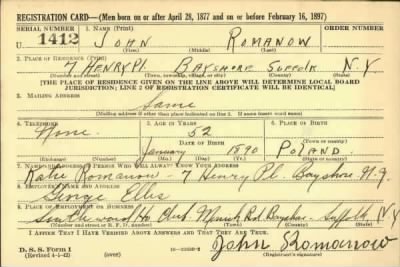 REGISTRATION CARD—(Men born on or after April 28, 1877 and on or before February 16, 1897)
SERIAL NUMBER
1. NAME (Print)
ORDER NUMBER
U 1412
JOHN ROMANOW
(First) (Middle) (Last)
2. PLACE OF RESIDENCE (Print)
7 HENRY PL. BAYSHORE SUFFOLK N.Y.
(Number and street) (Town, township, village, or city) (County) (State)
[THE PLACE OF RESIDENCE GIVEN ON THE LINE ABOVE WILL DETERMINE LOCAL BOARD
JURISDICTION; LINE 2 OF REGISTRATION CERTIFICATE WILL BE IDENTICAL]
3. MAILING ADDRESS
Same
(Mailing address if other than place indicated on line 2. If same insert word same)
4. TELEPHONE
5. AGE IN YEARS
6. PLACE OF BIRTH
None
52
DATE OF BIRTH
January 1890
POLAND
(Exchange) (Number) (Mo.) (Day) (Yr.) (State or country)
7. NAME AND ADDRESS OF PERSON WHO WILL ALWAYS KNOW YOUR ADDRESS
Katie Romanow - 7 Henry Pl. Bayshore N.Y.
8. EMPLOYER'S NAME AND ADDRESS
George Ellis
9. PLACE OF EMPLOYMENT OR BUSINESS
Club Bayshore - Suffolk N.Y.
(Number and street or R. F. D. number) (Town) (County) (State)
I AFFIRM THAT I HAVE VERIFIED ABOVE ANSWERS AND THAT THEY ARE TRUE.
D. S. S. Form 1
(Revised 4-1-42) (over)
John Romanow
(Registrant's signature)